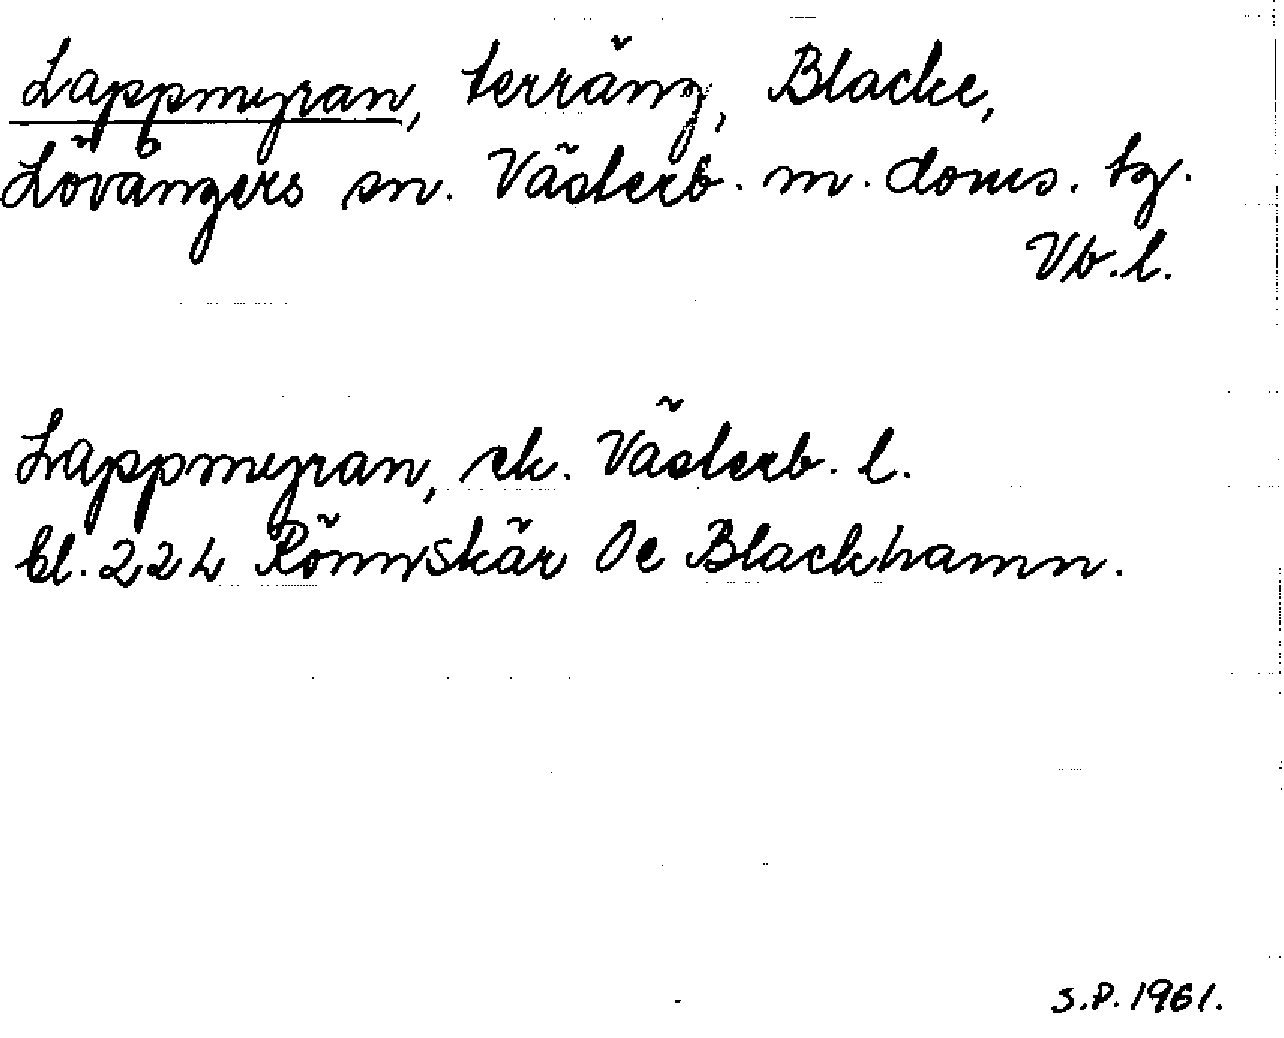 Lappmyran, terräng, Blacke,
Lövångers sn. Västerb. m. doms. tg.
Vb. l.
Lappmyran, ek. Västerb. l.
bl. 22 h Rönnskär Oc Blackhamn.
S.P. 1961.